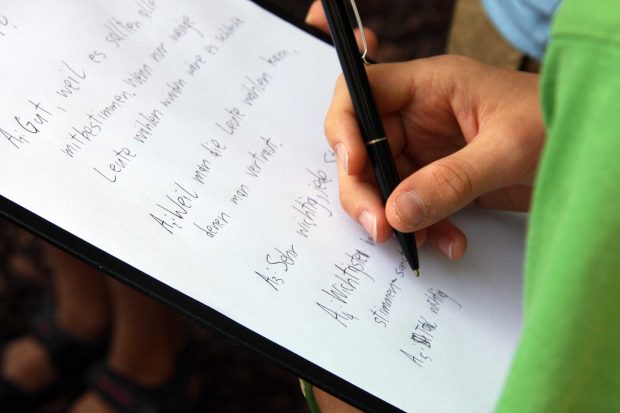 ?
A₁: Gut, weil es sollten alle
mitbestimmen. Wenn nur wenige
Leute wählen würden wäre es
A₂: Weil man die Leute wählen kann,
denen man vertraut.
A₃: Sehr wichtig, jede
A₄: Wichtigsten
stimmen
A₅: wichtig